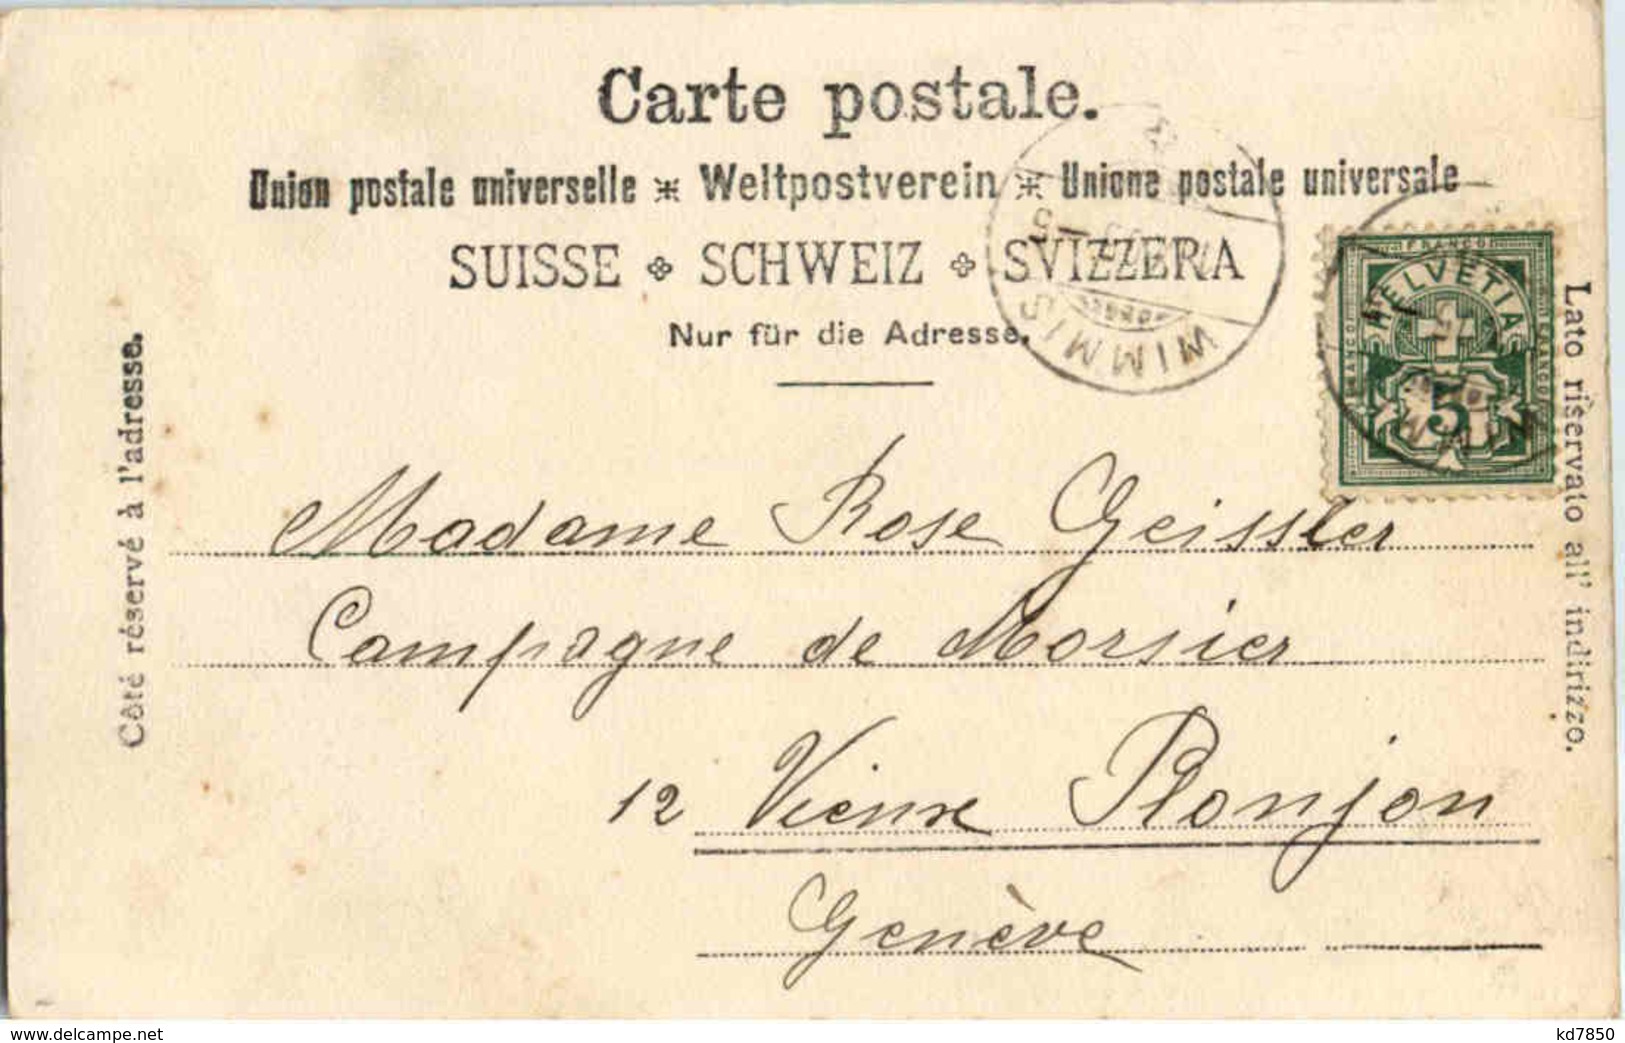 Carte postale.
Union postale universelle ⁜ Weltpostverein ⁜ Unione postale universale
SUISSE SCHWEIZ SVIZZERA
Nur für die Adresse.
Côté réservé à l'adresse.
Lato riservato all' indirizzo.
WIMMIS
FRANCO
FRANCO
FRANCO
HELVETIA
5
Madame Rose Geissler
Campagne de Morsier
12 Vieux Plonjon
Genève
delcampe.net
kd7850